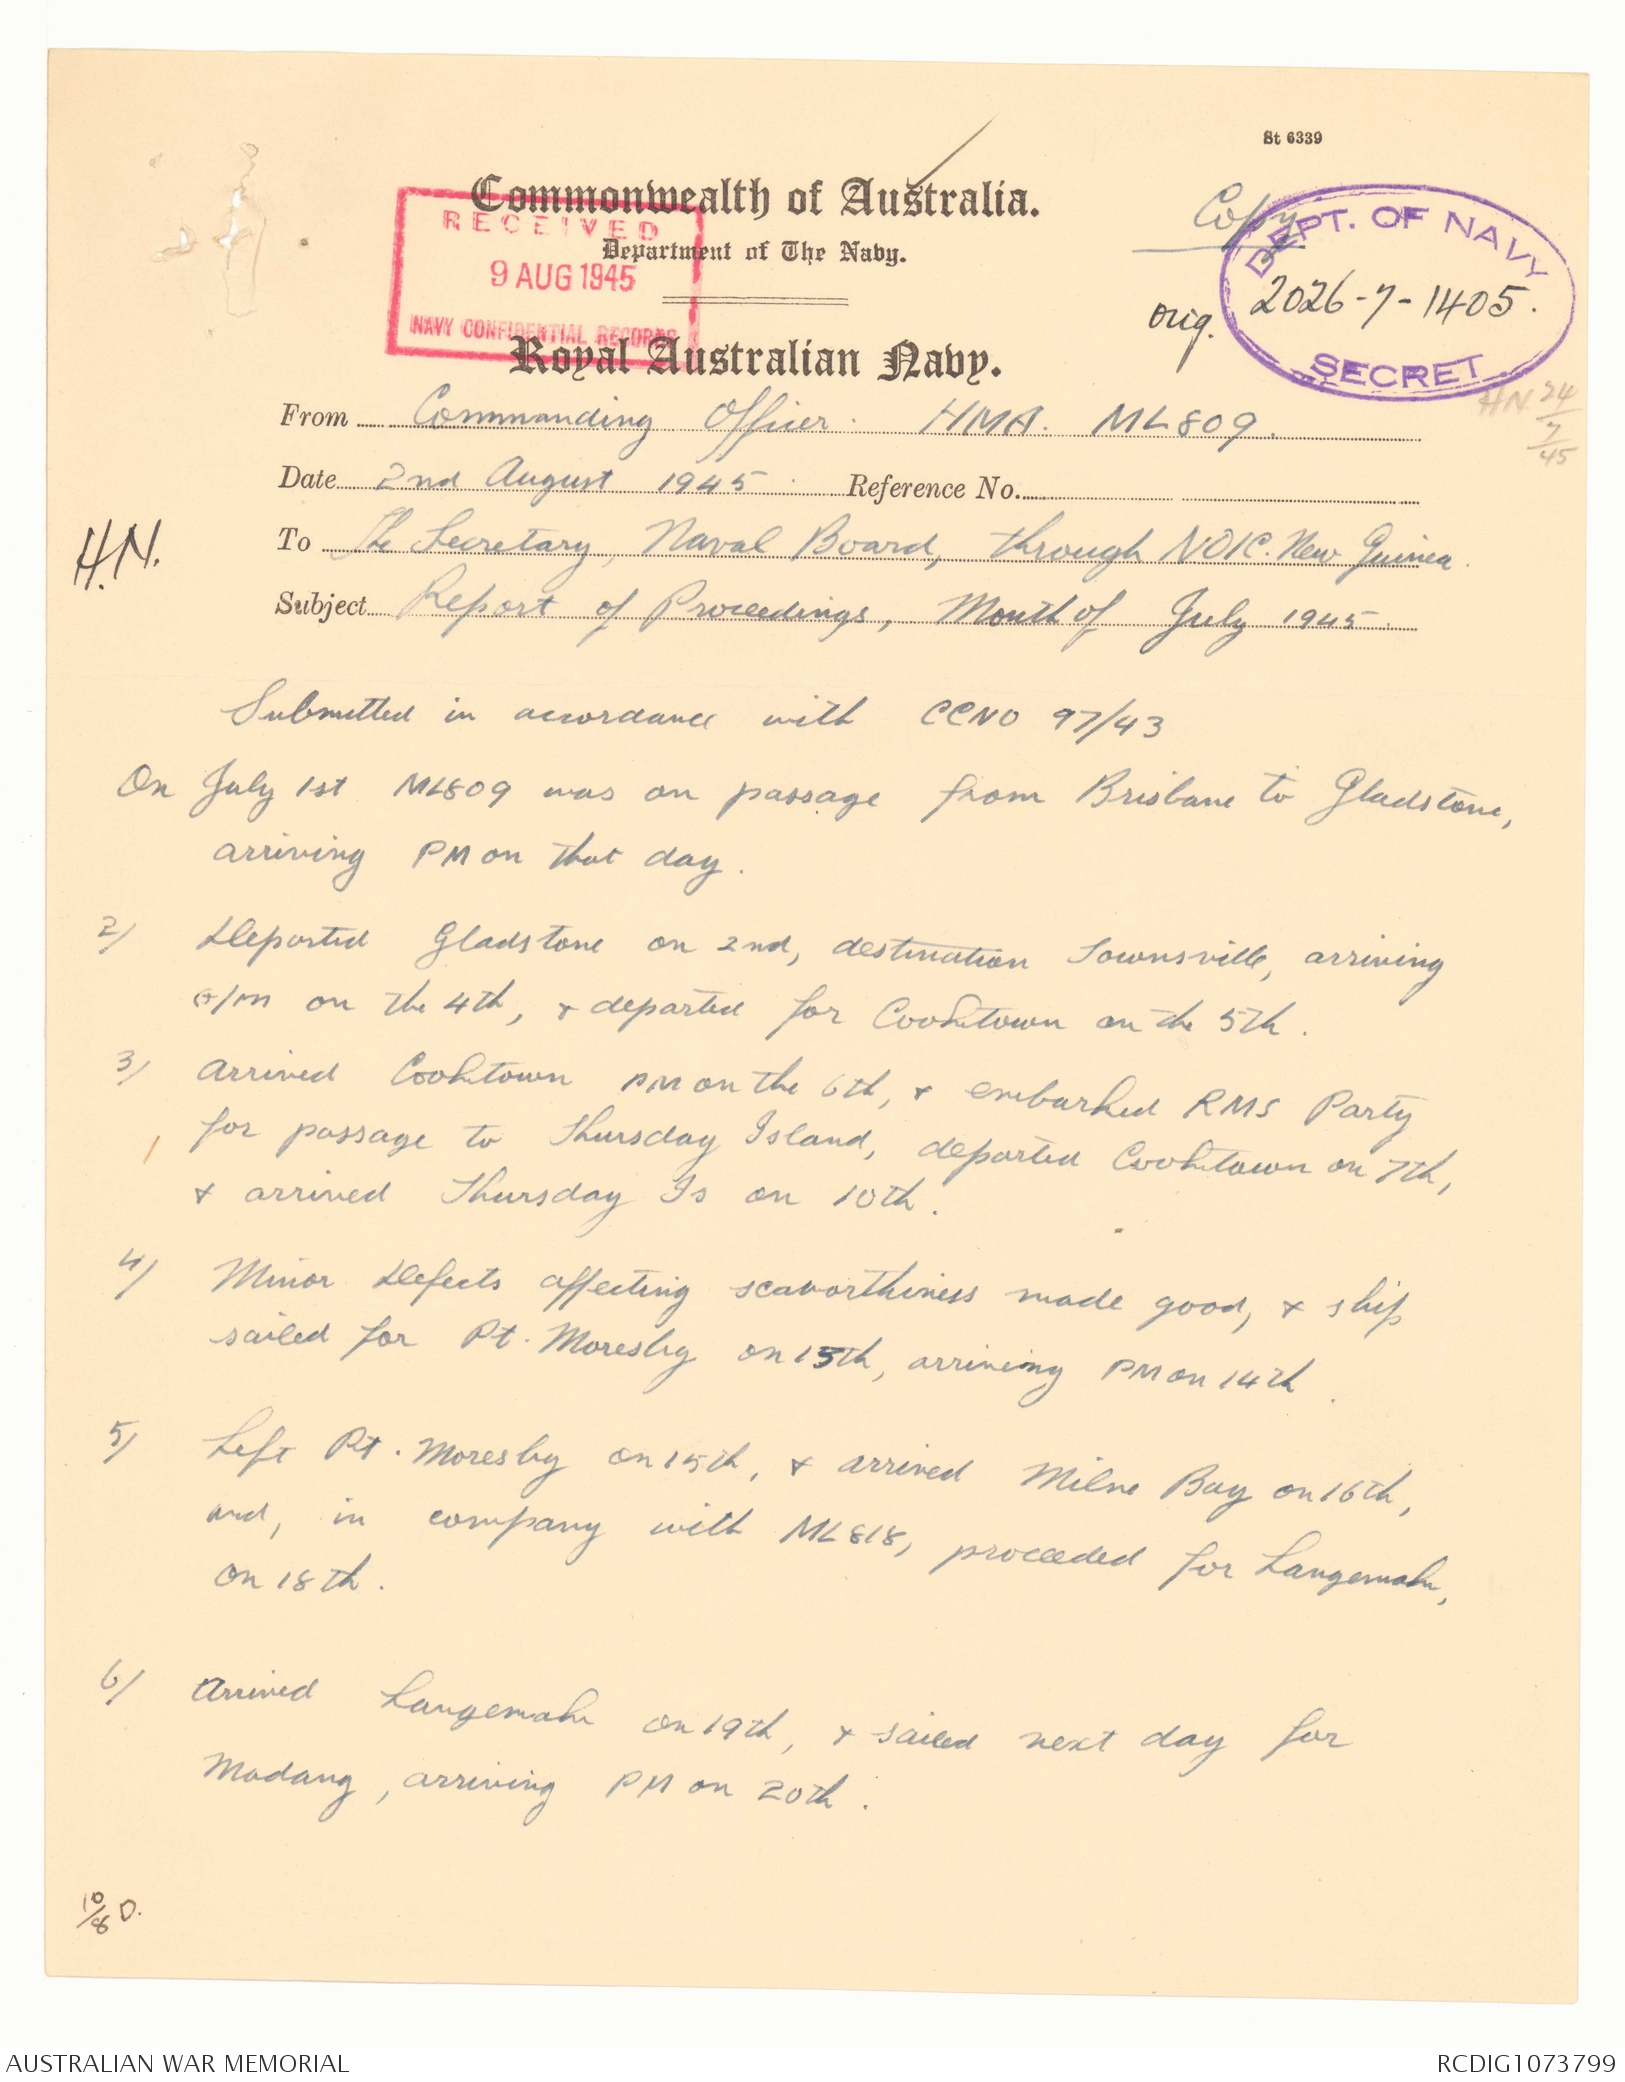 St 6339
Commonwealth of Australia.
Copy
RECEIVED
Department of The Navy.
9 AUG 1945
NAVY CONFIDENTIAL RECORDS
DEPT. OF NAVY
2026-7-1405.
SECRET
orig.
Royal Australian Navy.
HN 24/7/45
From Commanding Officer. HMA. ML809.
Date 2nd August 1945. Reference No.
H.N.
To The Secretary, Naval Board, through NOIC. New Guinea.
Subject Report of Proceedings, Month of July 1945.
Submitted in accordance with CCNO 97/43
On July 1st ML809 was on passage from Brisbane to Gladstone,
arriving PM on that day.
2/ Departed Gladstone on 2nd, destination Townsville, arriving
on the 4th, & departed for Cooktown on the 5th.
3/ Arrived Cooktown PM on the 6th, & embarked RMS Party
for passage to Thursday Island, departed Cooktown on 7th,
& arrived Thursday Is on 10th.
4/ Minor Defects affecting seaworthiness made good, & ship
sailed for Pt. Moresby on 13th, arriving PM on 14th.
5/ Left Pt. Moresby on 15th, & arrived Milne Bay on 16th,
and, in company with ML818, proceeded for Langemak,
on 18th.
6/ Arrived Langemak on 19th, & sailed next day for
Madang, arriving PM on 20th.
10/8 D.
AUSTRALIAN WAR MEMORIAL
RCDIG1073799